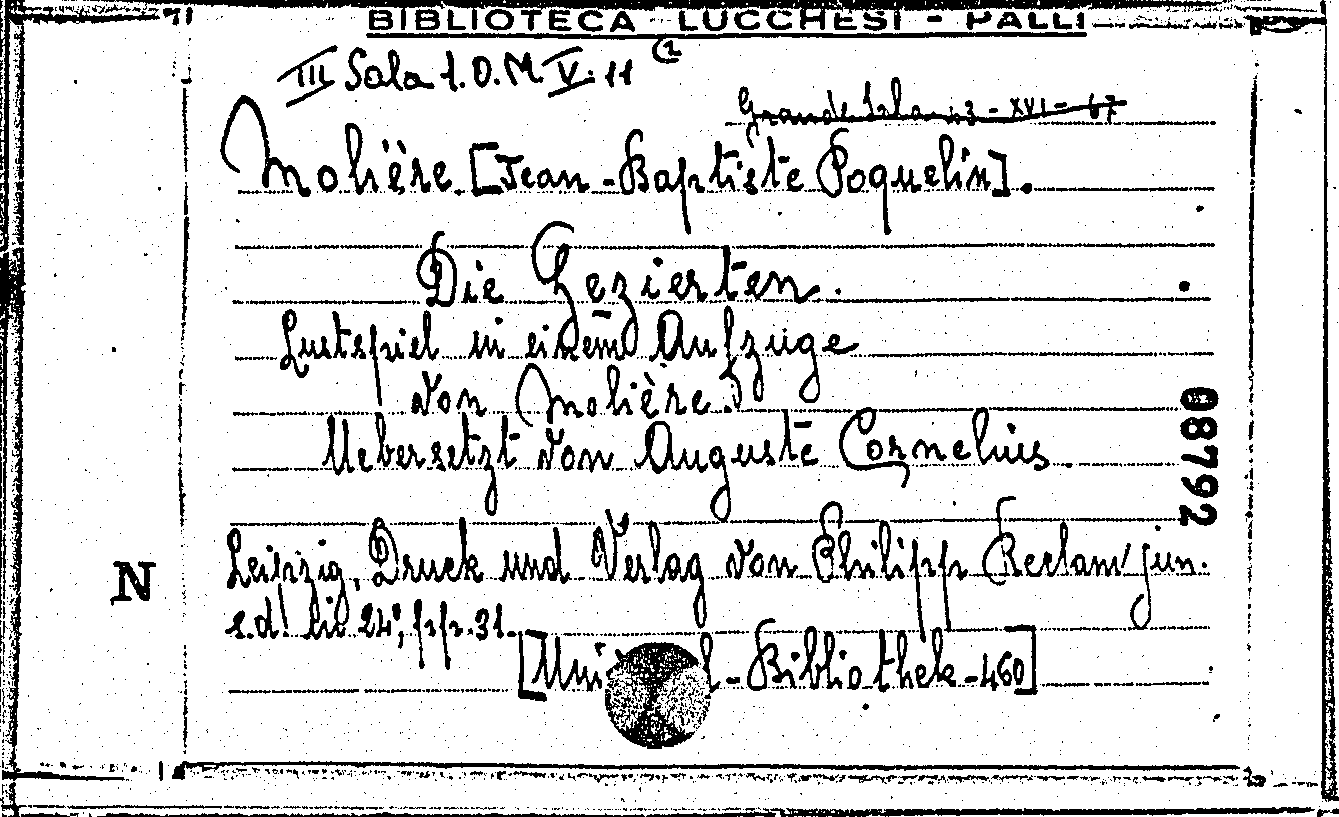 BIBLIOTECA LUCCHESI - PALLI
III Sala 1.O.M. V. 11 (2
Grande Sala 43 - XVI - 67
Molière [Jean-Baptiste Poquelin].
Die Gezierten.
Lustspiel in einem Aufzuge
von Molière.
Uebersetzt von Auguste Cornelius
08792
Leipzig, Druck und Verlag von Philipp Reclam jun.
N
s.d. in 24°, pp. 31.
[Uni l-Bibliothek-460]